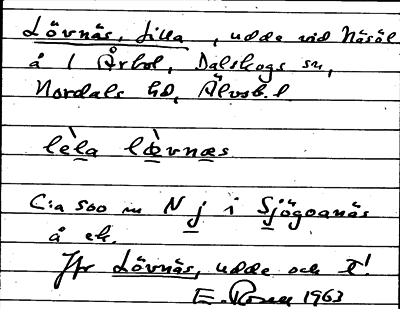 Lövnäs, Lilla, udde vid Näsöl
å 1 Årbol, Dalskogs sn,
Nordals hd, Älvsb. l
lèla lœvnæs
C:a 500 m N j i Sjögoanäs
å ek.
Jfr Lövnäs, udde och t!
E. Rosen 1963